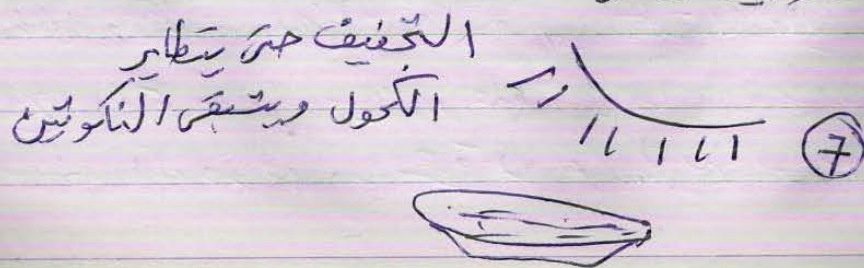 التجفيف حتى يتطاير
الكحول ويتبقى الناكوتين
7